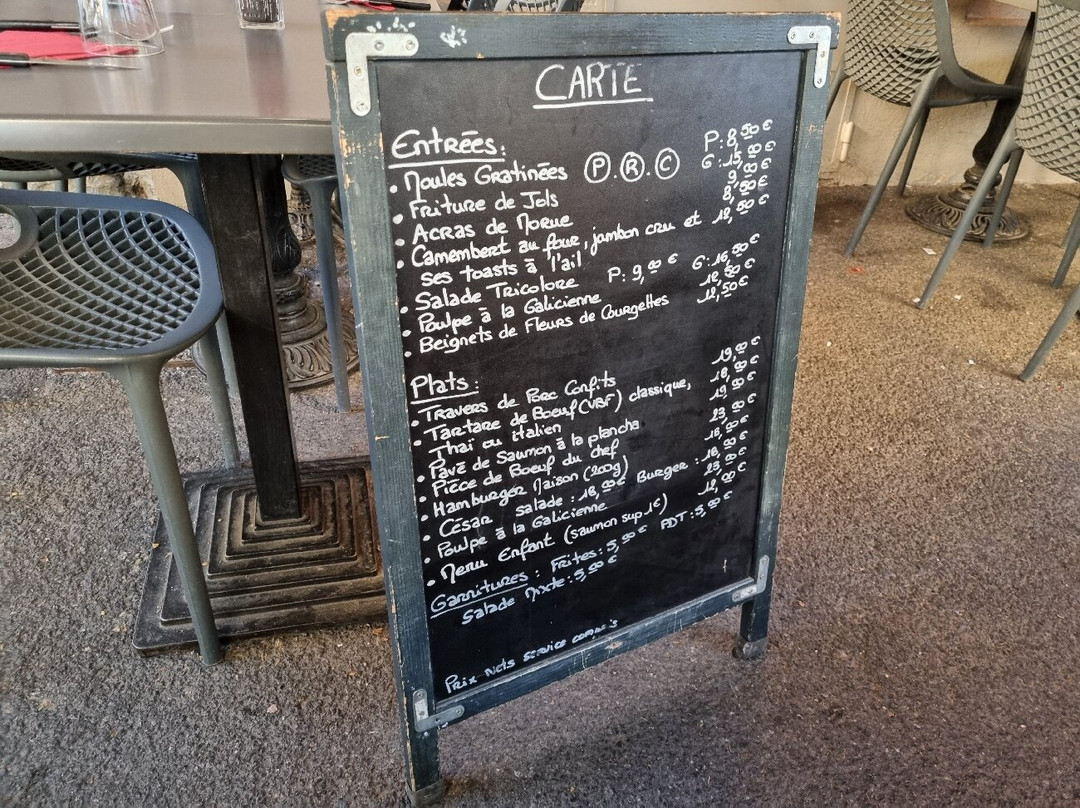 CARTE
Entrées:
• Moules Gratinées P.R.C P: 8,50 €
• Friture de Jols G: 15,
• Acras de Morue 8,50 €
• Camembert au four, jambon cru et 12,50 €
ses toasts à l'ail
• Salade Tricolore P: 9,00 € G: 16,50 €
• Poulpe à la Galicienne 12,50 €
• Beignets de Fleurs de Courgettes 12,50 €
Plats:
• Travers de Porc Confits 19,00 €
• Tartare de Boeuf (VBF) classique, 18,00 €
Thaï ou italien
• Pavé de Saumon à la plancha 19,00 €
• Pièce de Boeuf du chef 23,00 €
• Hamburger Maison (200g) 16,00 €
• César salade : 16,00 € Burger : 16,00 €
• Poulpe à la Galicienne 23,00 €
• Menu Enfant (saumon sup 1€) 12,00 €
Garnitures : Frites : 5,00 € PDT : 5,00 €
Salade Mixte : 5,00 €
Prix Nets service compris